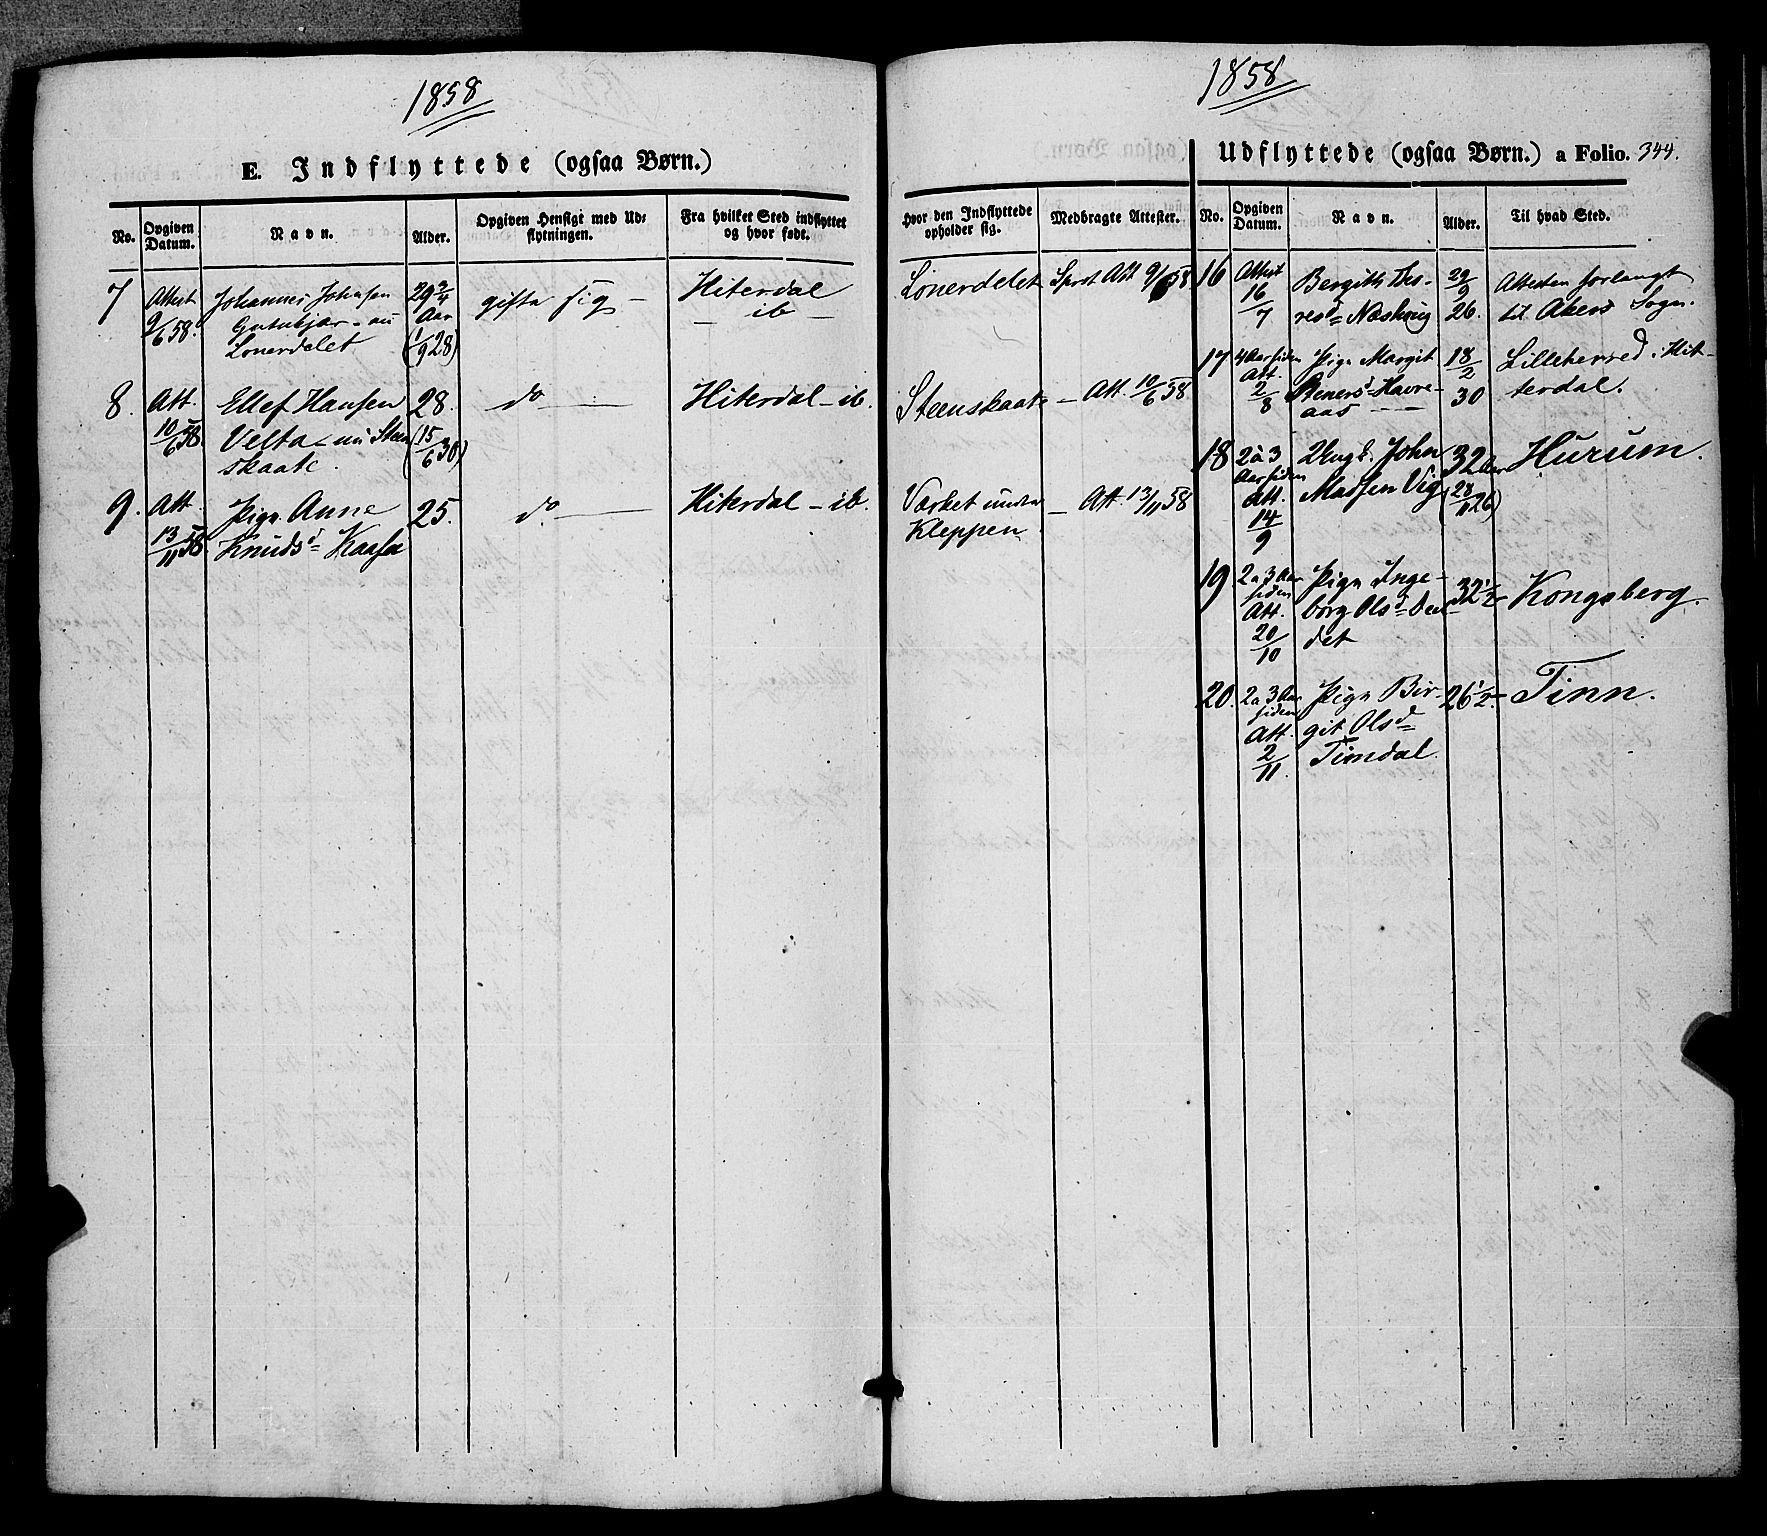 1858
E. Indflyttede (ogsaa Børn.)
No.
Opgiven Datum.
Navn.
Alder.
Opgiven Hensigt med Udflytningen.
Fra hvilket Sted indflyttet og hvor født.
7
Attest 9/6 58.
Johannes Johnsen
nu
Lonerdelet
29 3/4
Aar
(1/9 28)
gifta sig –
Hiterdal
– ib –
8.
Att.
10/6 58.
Ellef Hansen
Velta – nu Steen
skaate.
28.
(15/6 30)
do –
Hiterdal – ib.
9.
Att.
13/11 58.
Pige Anne
Knudsd Kaasa
25.
do –
Hiterdal – ib.
1858
Udflyttede (ogsaa Børn.) a Folio. 344.
Hvor den Indflyttede opholder sig.
Medbragte Attester.
No.
Opgiven Datum.
Navn.
Alder.
Til hvad Sted.
Lonerdelet
Att 9/6 58
Steenskaate
– Att. 10/6 58
Værket under
Kleppen
– Att. 13/11 58
16
Attest
16/7
Bergith
resd
29/9
26.
Attesten forlangt
til Akers Sogn.
17
4 Aar siden
Att.
2/8
Pige Margit
Reiersd Havre-
aas –
18/2
30
Lilleherred i Hit-
terdal.
18
2 à 3
Aar siden
Att.
14/9
Ungk. John
Madsen Vig
32 Aar
(28/11 26)
Hurum.
19
2 a 3 Aar
siden
Att.
20/10
Pige Inge-
borg Olsd
det
32 1/2
Kongsberg.
20.
2 a 3 Aar
siden
Att.
2/11.
Pige Bir-
git Olsd
Timdal.
26 1/2.
Tinn.